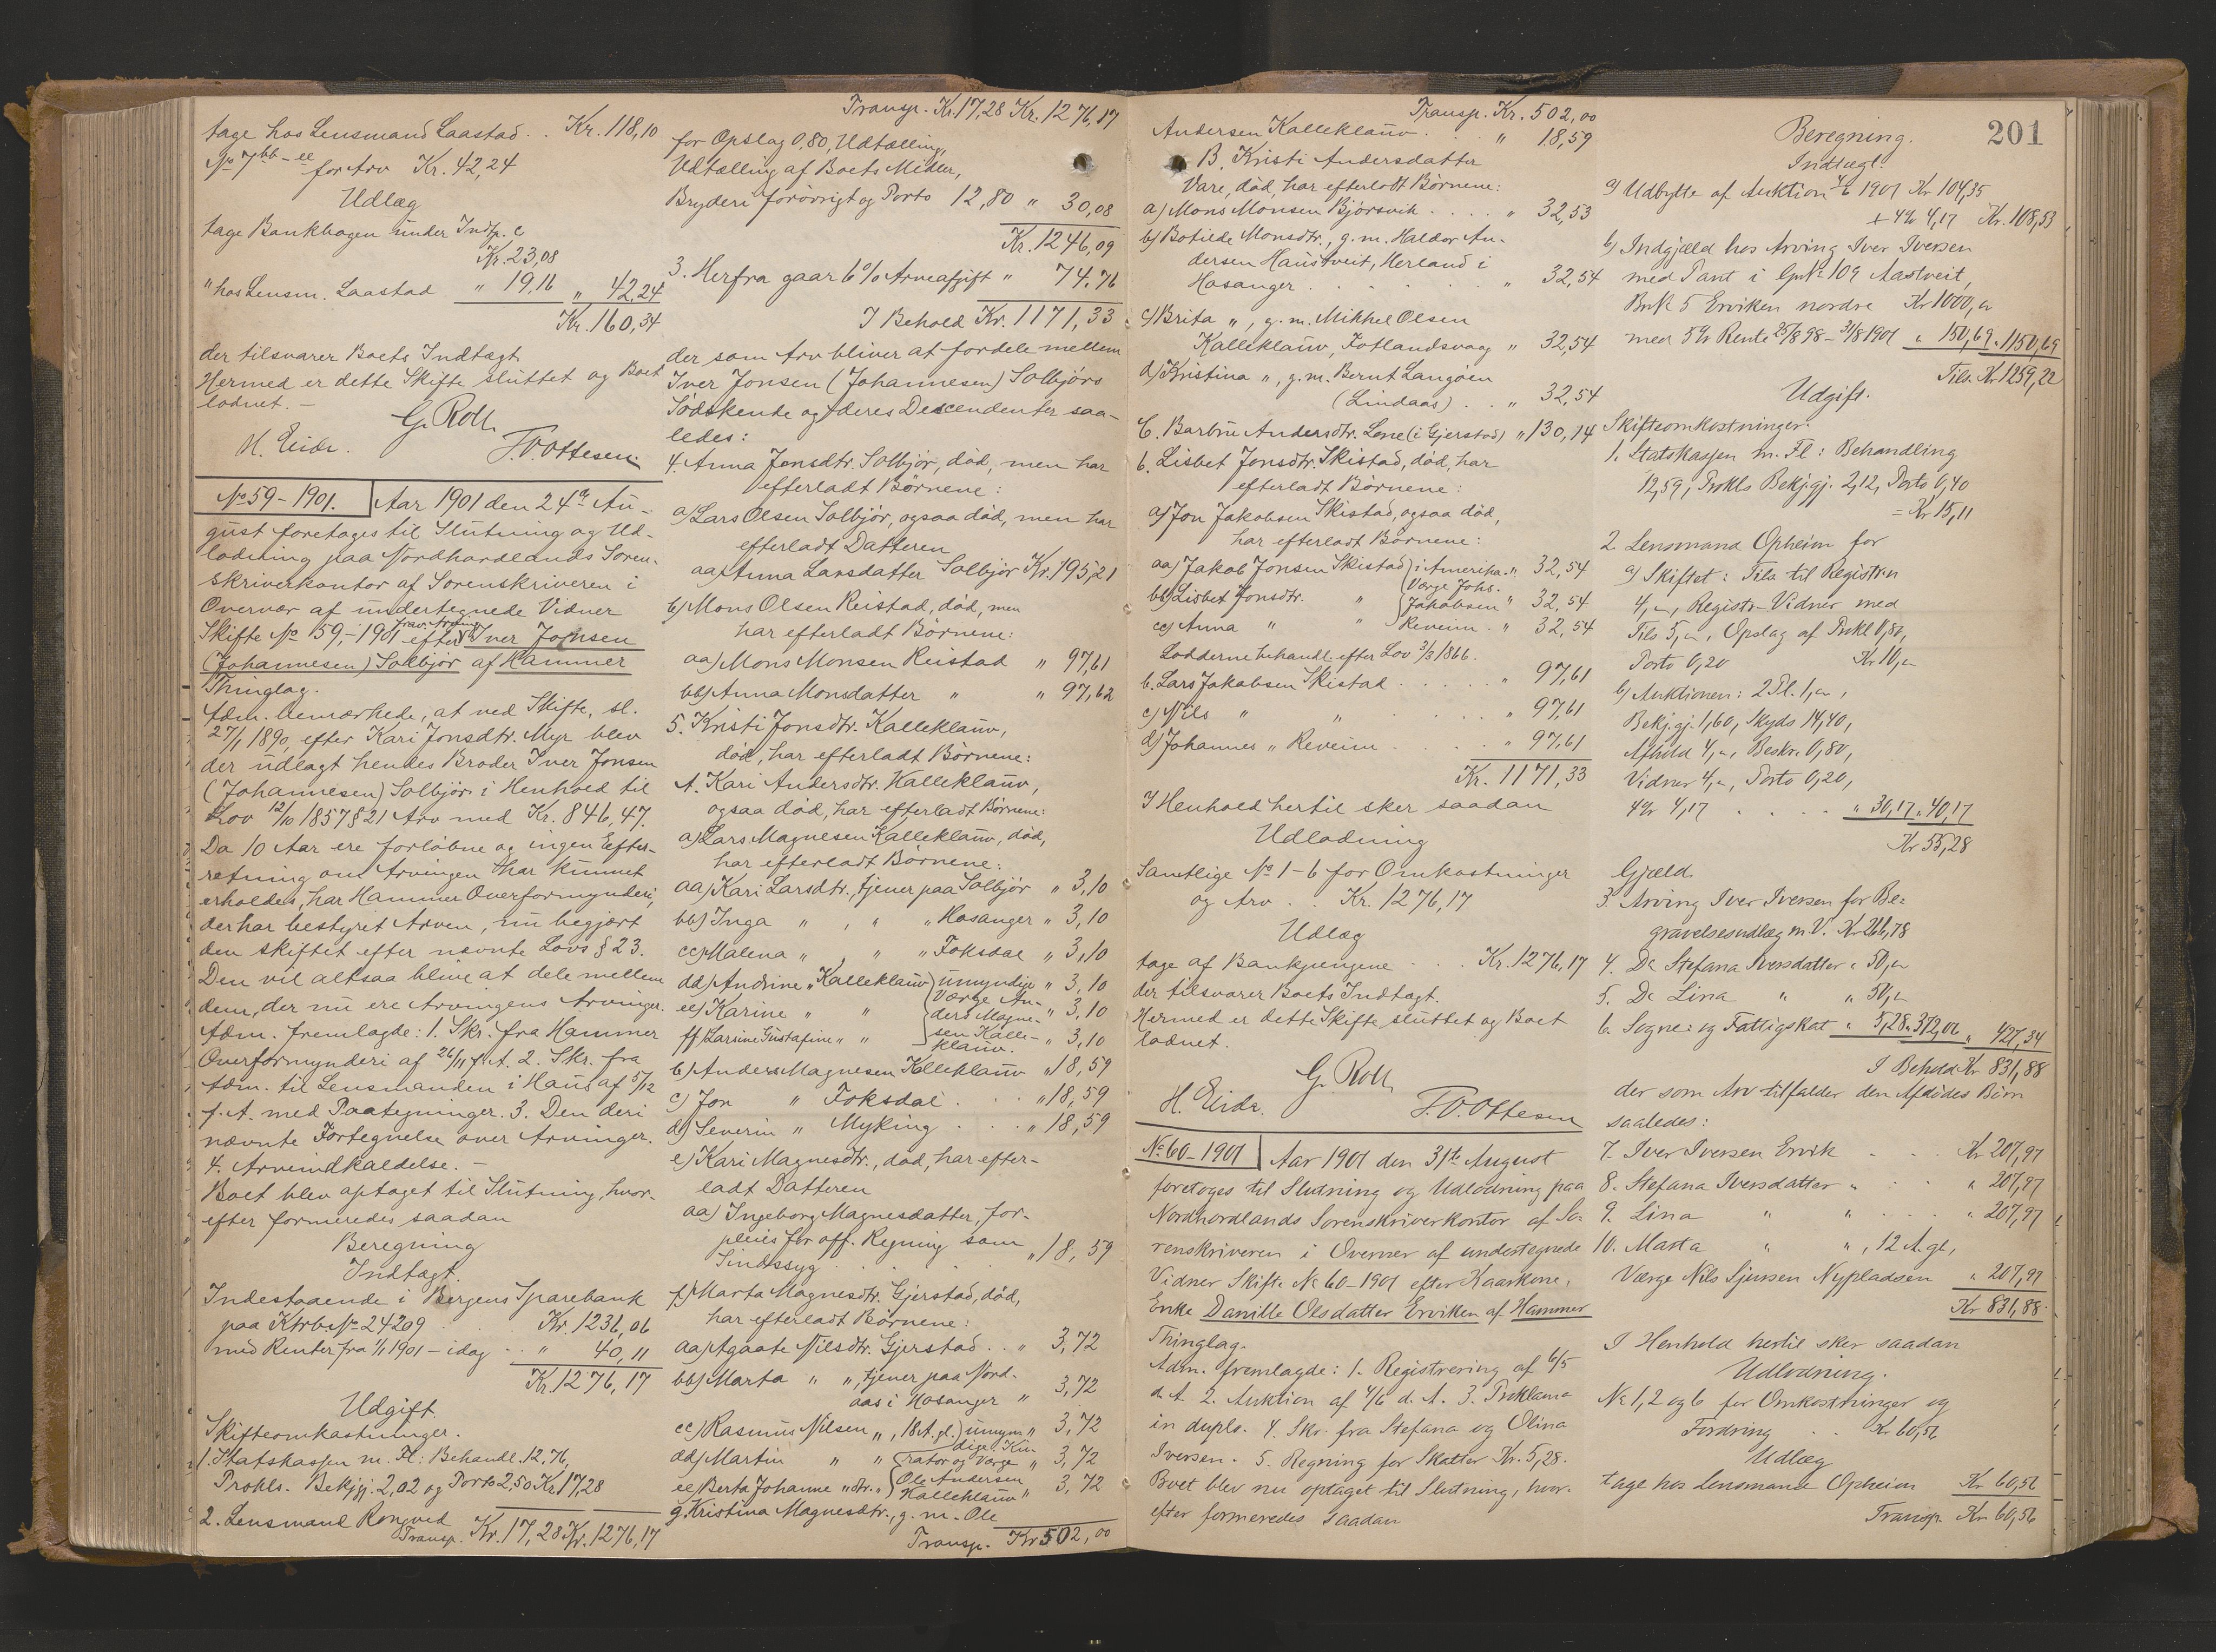 tage hos Lensmand Laastad . . Kr. 118,10
No 7 bb-ee for Arv Kr. 42,24
Udlæg
tage Bankbogen under Indt. c
Kr. 23,08
" hos Lensm. Laastad " 19,16 " 42,24
Kr. 160,34
der tilsvarer Boets Indtægt
Hermed er dette Skifte sluttet og Boet
lodnet. –
G. Roll
H. Eide. T.O. Ottesen.
No 59 – 1901. Aar 1901 den 24de Au-
gust foretoges til Slutning og Ud-
lodning paa Nordhordlands Soren-
skriverkontor af Sorenskriveren i
Overvær af undertegnede Vidner
Skifte No 59,- 1901 efter frav. Arving Iver Jonsen
(Johannesen) Solbjør af Hammer
Thinglag.
Adm. bemærkede, at ved Skifte, sl.
27/1 1890, efter Kari Jonsdtr. Myr blev
der udlagt hendes Broder Iver Jonsen
(Johannesen) Solbjør i Henhold til
Lov 12/10 1857 § 21 Arv med Kr. 846,47.
Da 10 Aar ere forløbne og ingen Efter-
retning om Arvingen har kunnet
erholdes, har Hammer Overformynderi,
der har bestyret Arven, nu begjært
den skiftet efter nævnte Lovs § 23.
Den vil altsaa blive at dele mellem
dem, der nu ere Arvingens Arvinger.
Adm. fremlagde: 1. Skr. fra Hammer
Overformynderi af 26/11 f. A. 2. Skr. fra
Adm. til Lensmanden i Haus af 5/12
f. A. med Paategninger. 3. Den deri
nævnte Fortegnelse over Arvinger.
4. Arveindkaldelse. –
Boet blev optaget til Slutning, hvor-
efter formeredes saadan
Beregning
Indtægt.
Indestaaende i Bergens Sparebank
paa Ktrb No 24209 Kr. 1236,06
med Renter fra 1/1 1901 – idag . . " 40,11
Kr. 1276,17
Udgift.
Skifteomkostninger.
1. Statskassen m. Fl: Behandl. 12,76,
Prokls. Bekjgj. 2,02 og Porto 2,50 Kr. 17,28
2. Lensmand Rongved
Transp. Kr. 17,28 Kr. 1276,17
Transp. Kr. 17,28 Kr. 1276,17
for Opslag 0,80, Udtælling,
Udtælling af Boets Midler,
Bryderi forøvrigt og Porto 12,80 " 30,08
Kr. 1246,09
3. Herfra gaar 6 % Arveafgift " 74.76
I Behold Kr. 1171,33
der som Arv bliver at fordele mellem
Iver Jonsen (Johannesen) Solbjørs
Sødskende og deres Descendenter saa-
ledes:
4. Anna Jonsdtr. Solbjør, død, men har
efterladt Børnene:
a) Lars Olsen Solbjør, ogsaa død, men har
efterladt Datteren
aa) Anna Larsdatter Solbjør Kr. 195,21
b) Mons Olsen Reistad, død, men
har efterladt Børnene:
aa) Mons Monsen Reistad " 97,61
bb) Anna Monsdatter " " 97,62
5. Kristi Jonsdtr. Kalleklauv,
død, har efterladt Børnene:
A. Kari Andersdtr. Kalleklauv,
ogsaa død, har efterladt Børnene:
a) Lars Magnesen Kalleklauv, død,
har efterladt Børnene:
aa) Kari Larsdtr., tjener paa Solbjør " 3,10
bb) Inga " , " " Hosanger " 3,10
cc) Malena " , " " Foksdal " 3,10
dd) Andrine " Kalleklauv umyndige " 3,10
ee) Karine " " Værge An-
ders Magne- " 3,10
ff) Larsine Gustafine " " sen Kalle-
klauv. " 3,10
b) Anders Magnesen Kalleklauv " 18,59
c) Jon " Foksdal . . . " 18,59
d) Severin " Myking . . . " 18,59
e) Kari Magnesdtr., død, har efter-
ladt Datteren
aa) Ingeborg Magnesdatter, for-
pleies for off. Regning som
Sindssyg . . . . " 18,59
f) Marta Magnesdtr. Gjerstad, død,
har efterladt Børnene:
aa) Agaate Nilsdtr. Gjerstad . . " 3,72
bb) Marta " ", tjener paa Nord-
aas i Hosanger " 3,72
cc) Rasmus Nilsen ", 18 A. gl. umyn- " 3,72
dige. Ku-
dd) Martin " " rator og Værge " 3,72
Ole Andersen
ee) Berta Johanne " dtr. " Kalleklauv " 3,72
g. Kristina Magnesdtr., g. m. Ole
Transp. Kr. 502,00
Transp. Kr. 502,00
Andersen Kalleklauv . . . " 18,59
B. Kristi Andersdatter
Vare, død, har efterladt Børnene:
a) Mons Monsen Bjørsvik . . . . " 32,53
b) Botilde Monsdtr., g. m. Haldor An-
dersen Haustveit, Herland i
Hosanger . . . . " 32,54
c) Brita ", g. m. Mikkel Olsen
Kalleklauv, Fotlandsvaag " 32,54
d) Kristina ", g. m. Bernt Langøen
(Lindaas) . . " 32,54
C. Barbru Andersdtr. Lone (i Gjerstad) " 130,14
6. Lisbet Jonsdtr. Skistad, død, har
efterladt Børnene:
a) Jon Jakobsen Skistad, ogsaa død,
har efterladt Børnene:
aa) Jakob Jonsen Skistad i Amerika. " 32,54
Værge Johs.
bb) Lisbet Jonsdtr. " Jakobsen " 32,54
cc) Anna " " Reveim . " 32,54
Lodderne behandl. efter Lov 3/3 1866.
b. Lars Jakobsen Skistad . . . . . " 97,61
c) Nils " " . . . . " 97,61
d) Johannes " Reveim . . . . . " 97,61
Kr. 1171,33
I Henhold hertil sker saadan
Udlodning
Samtlige No 1–6 for Omkostninger
og Arv . . Kr. 1276,17
Udlæg
tage af Bankpengene . . . Kr. 1276,17
der tilsvarer Boets Indtægt.
Hermed er dette Skifte sluttet og Boet
lodnet.
G. Roll
H. Eide. T.O. Ottesen
No 60 – 1901 Aar 1901 den 31te August
foretoges til Slutning og Udlodning paa
Nordhordlands Sorenskriverkontor af So-
renskriveren i Overvær af undertegnede
Vidner Skifte No 60 – 1901 efter Kaarkone,
Enke Danille Olsdatter Erviken af Hammer
Thinglag.
Adm. fremlagde: 1. Registrering af 6/5
d. A. 2. Auktion af 4/6 d. A. 3. Proklama
in duplo. 4. Skr. fra Stefana og Olina
Iversen. 5. Regning for Skatter Kr. 5,28.
Boet blev nu optaget til Slutning, hvor-
efter formeredes saadan
201
Beregning.
Indtægt.
a) Udbytte af Auktion 4/6 1901 Kr 104,35
+ 4% 4,17 Kr. 108,53
b) Indgjæld hos Arving Iver Iversen
med Pant i GNo 109 Aastveit,
BNo 5 Erviken nordre Kr 1000,"
med 5% Rente 25/8 98 – 31/8 1901 " 150,69 " 1150,69
Tils. Kr 1259,22
Udgift.
Skifteomkostninger.
1. Statskassen m. Fl: Behandling
12,59, Prokls Bekj.gj. 2,12, Porto 0,40
= Kr 15,11
2. Lensmand Opheim for
a) Skiftet: Tils til Registr.n
4,", Registr. Vidner med
Tils 5,", Opslag af Prokl 0,80,
Porto 0,20 Kr. 10,"
b) Auktionen: 2 Pl. 1,",
Bekj.gj. 1,60, Skyds 14,40,
Afhold 4,", Beskr. 0,80,
Vidner 4,", Porto 0,20,
4% 4,17 . . . . " 30,17 " 40,17
Kr 55,28
Gjæld.
3. Arving Iver Iversen for Be-
gravelsesudlæg m. V. Kr 266,78
4. Do Stefana Iversdatter " 50,"
5. Do Lina " " 50,"
6. Sogne- og Fattigskat " 5,28 " 372,06 " 427,34
I Behold Kr 831,88
der som Arv tilfalder den Afdødes Børn
saaledes:
7. Iver Iversen Ervik . . . Kr 207,97
8. Stefana Iversdatter " . . " 207,97
9. Lina " " . . . . " 207,97
10. Marta " ", 12 A. gl,
Værge Nils Sjursen Nypladsen " 207,97
Kr 831,88.
I Henhold hertil sker saadan
Udlodning.
No 1, 2 og 6 for Omkostninger og
Fordring . . Kr. 60,56
Udlæg
tage hos Lensmand Opheim Kr 60,56
Transp. Kr. 60,56